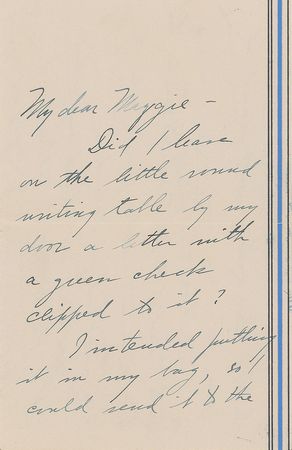 My dear Maggie –
Did I leave
on the little round
writing table by my
door a letter with
a green check
clipped to it?
I intended putting
it in my bag, so I
could send it to the